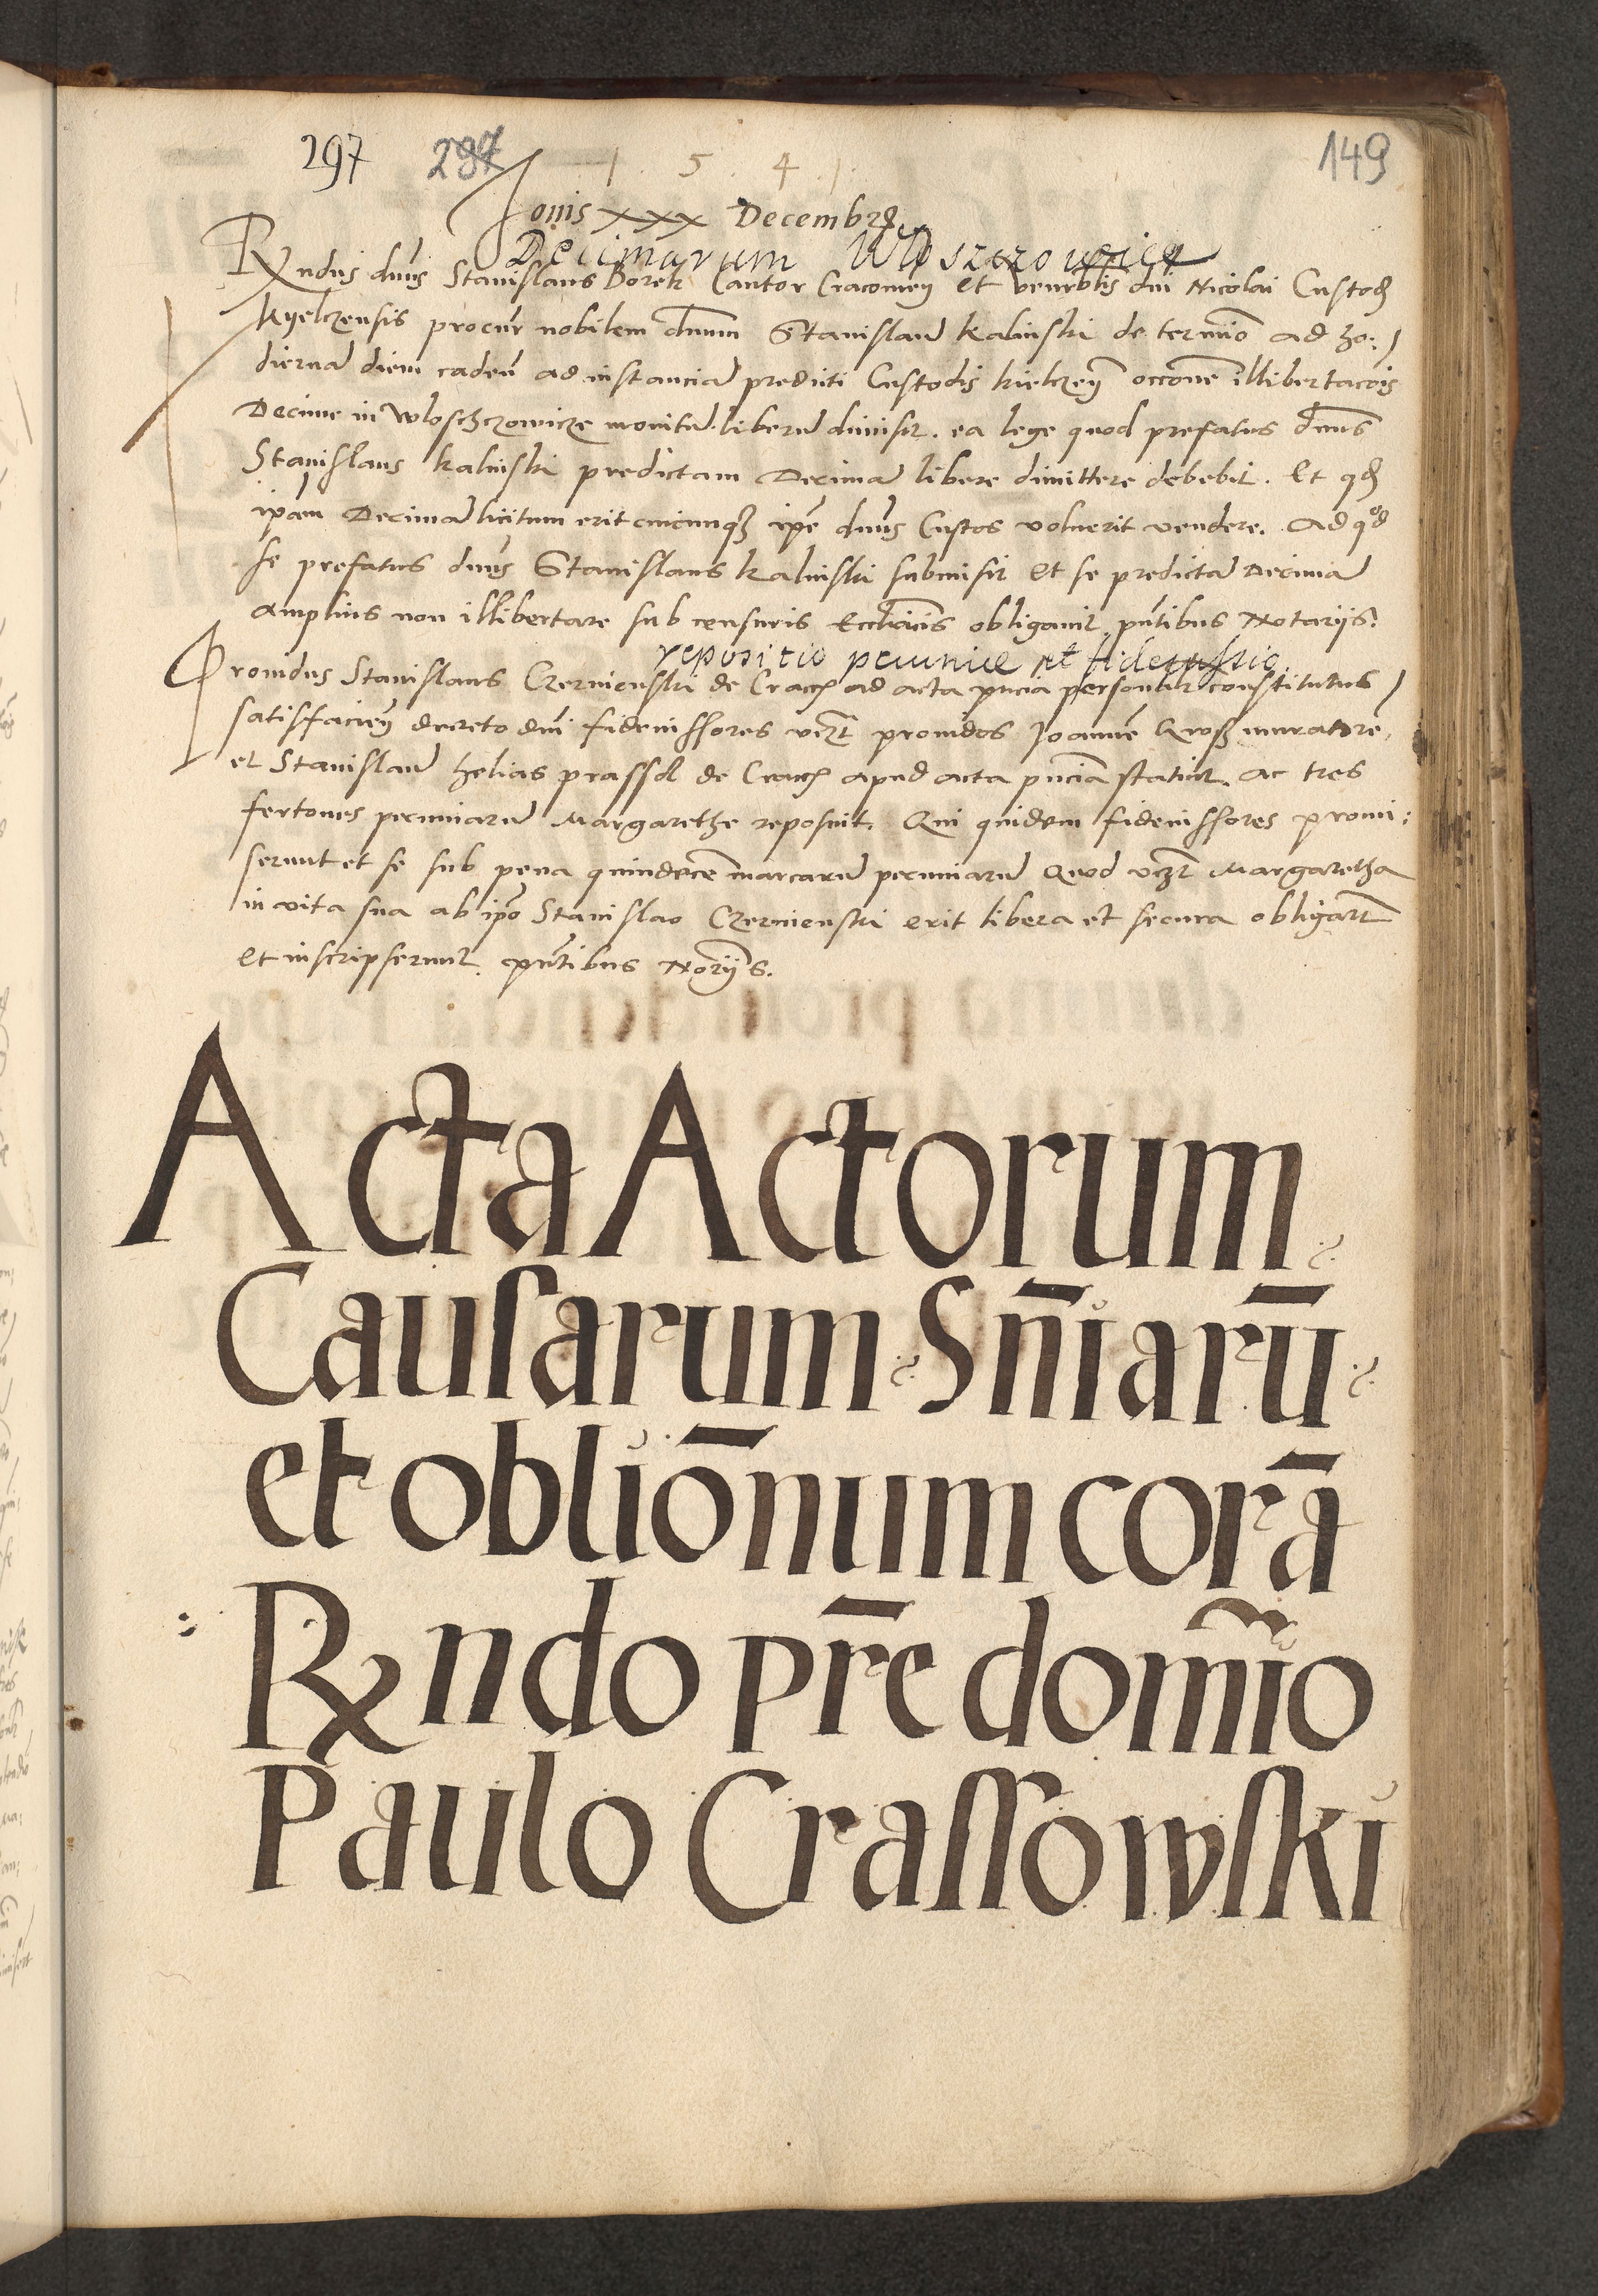 297 297 149
1 . 5 . 4 . 1 .
Jouis xxx Decembr
Decimarum Wloszczowicze
Rndus dnus Stanislaus Borek Cantor Cracouien et venerblis dni Nicolai Custod
Kyelczensis procur nobilem dnum Stanislaum Kalinski de termino ad ho:
diernam diem caden ad instanciam predicti Custodis Kielczen occone illibertacois
Decime in Wloschczowicze monitum liberum dimisit. ea lege quod prefatus dnus
Stanislaus Kalinski predictam Decimam libere dimittere debebit. Et qd
ipam Decimam licitum erit cuicunqz ipe dnus Custos voluerit vendere. Ad qod
se prefatus dnus Stanislaus Kalinski submisit et se predictam Decimam
amplius non illibertare sub censuris Eccliacis obligauit. pntibus Notarijs.
repositio pecuniae et fideiussio
Prouidus Stanislaus Czernienski de Crac ad acta pncia personalr constitutus
satisfacien decreto dni fideiussores vczt prouidos Joannem muratorem
et Stanislaum helias prassol de Crac apud acta pncia statuit. ac tres
fertones pecuniarum Margarethe reposuit. Qui quidem fideiussores promi:
serunt et se sub pena quindecem marcarum pecuniarum Quod vczt Margaretha
in vita sua ab ipo Stanislao Czernienski erit libera et secura obligart
et inscripserunt. pntibus Norijs.
Acta Actorum
Causarum Sn̄iarū
et obliōnum corā
Rndo pr̄e domīo
Paulo Crassowski